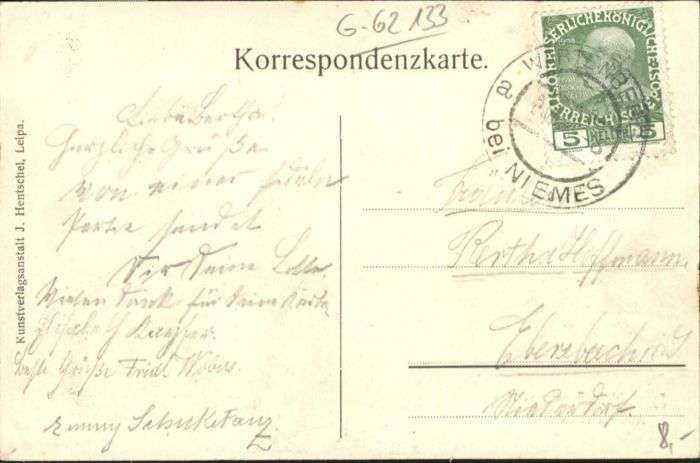 G-62 133
Korrespondenzkarte.
KAISERLICHE KÖNIGLICHE
ÖSTERREICHISCHE
5 HELLER 5
a
bei NIEMES
Kunstverlagsanstalt J. Hentschel, Leipa.
Liebe Bertha.
Herzliche Grüße
von einer fidelen
Partie sendet
Dir Deine Lotte.
Vielen Dank für Deine Karte
Elisabeth
Beste Grüße Fridl
Emmy Schicketanz
Fräulein
Bertha Hoffmann,
Ebersbach
8,-